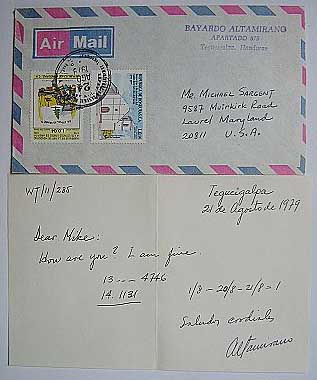 Air Mail
BAYARDO ALTAMIRANO
APARTADO 878
Tegucigalpa, Honduras
Mr. Michael Sargent
9587 Muirkirk Road
Laurel Maryland
20811 U.S.A.
WT/11/285
Tegucigalpa
21 de Agosto de 1979
Dear Mike:
How are you? I am fine.
13 --- 4746
14. 1131
1/8 - 20/8 - 21/8 = 1
Saludos cordiales
Altamirano